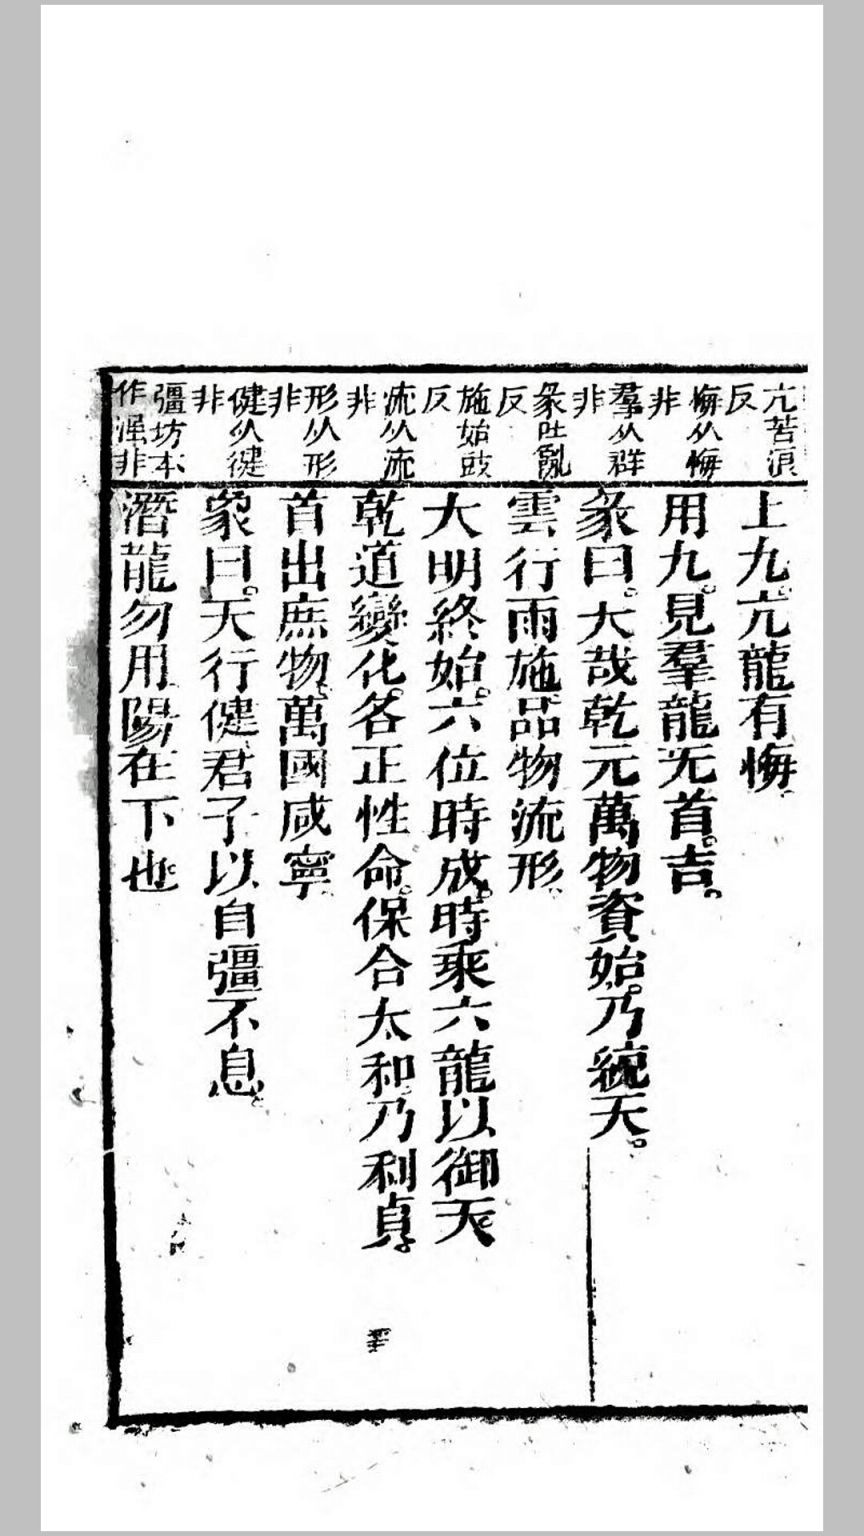 亢苦浪
反
悔从悔
非
羣从群
非
彖吐亂
反
施始豉
反
流从流
非
形从形
非
健从徤
非
彊坊本
作强非
上九。亢龍有悔。
用九。見羣龍无首。吉。
彖曰。大哉乾元萬物資始。乃統天。
雲行雨施品物流形。
大明終始。六位時成。時乘六龍以御天。
乾道變化。各正性命。保合太和。乃利貞。
首出庶物。萬國咸寧。
象曰。天行健君子以自彊不息。
潛龍勿用陽在下也